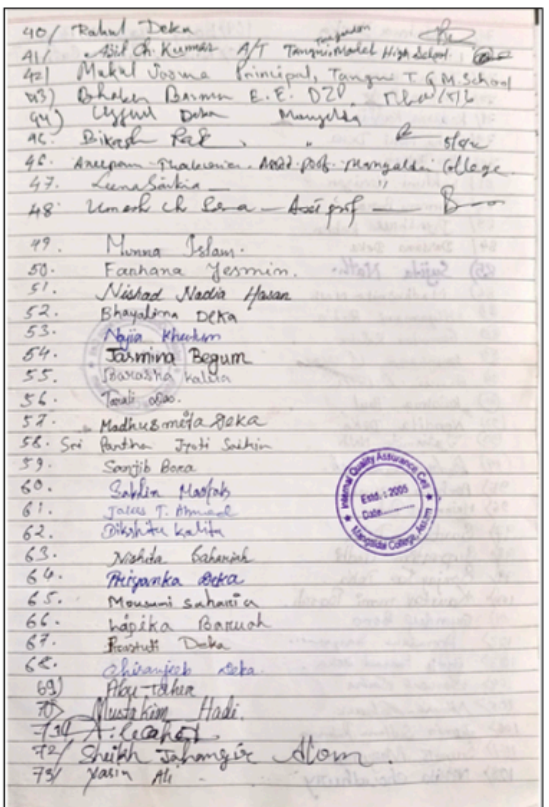 40/ Rahul Deka
41/ Asil Ch. Kumar A/T Tangni Model High School
42/ Mukul Sarma Principal, Tangni T.G.M. School
43) Bhaben Barman E.E. DZP,
44) Deka Mangaldai
45. Bikash
46. Anupam Asstt. prof. Mangaldai College.
47. Leena Saikia
48. Umesh Ch Bora — Asst prof —
49. Munna Islam.
50. Farhana Yesmin.
51. Nishad Nadia Hasan
52. Bhayalina Deka
53. Najia Khatun
54. Jasmina Begum
55. Barasha Kalita
56.
57. Madhusmita Deka
58. Sri Partha Jyoti Saikia
59. Sanjib Bora
60.
61. T. Ahmed
62. Dikshita Kalita
63. Nishita
64. Priyanka Deka
65. Mousumi Saharia
66. Lipika Baruah
67. Prastuti Deka
68. Chiranjeeb Deka.
69) Abu Taher
70) Mustakim Hadi.
71)
72/ Sheikh Jahangir Alom
73/ Yasin Ali
Internal Quality Assurance Cell
Estd. : 2005
Date
Mangaldai College, Assam